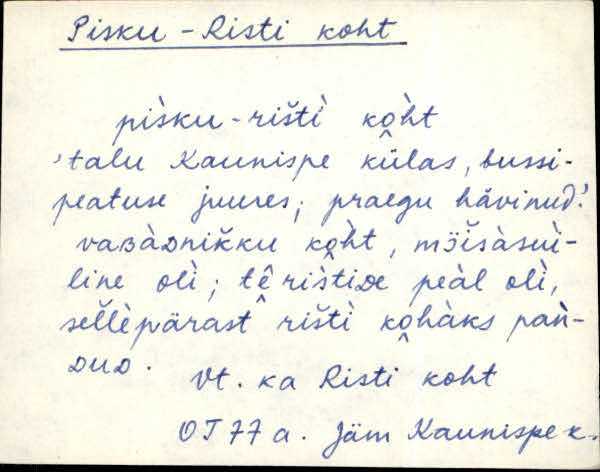 Pisku-Risti koht
pìsku-rištì kò̭ht
'talu Kaunispe külas, bussi-
peatuse juures; praegu hävinud.'
vaʙàᴅnikku kò̭ht, mȫisàsui-
line olì; tḙ̂ rìštiᴅe peàl olì,
sellèpärast rištì ko̭hàks pàn-
ᴅuᴅ.
Vt. ka Risti koht
OT 77 a. Jäm Kaunispe k.